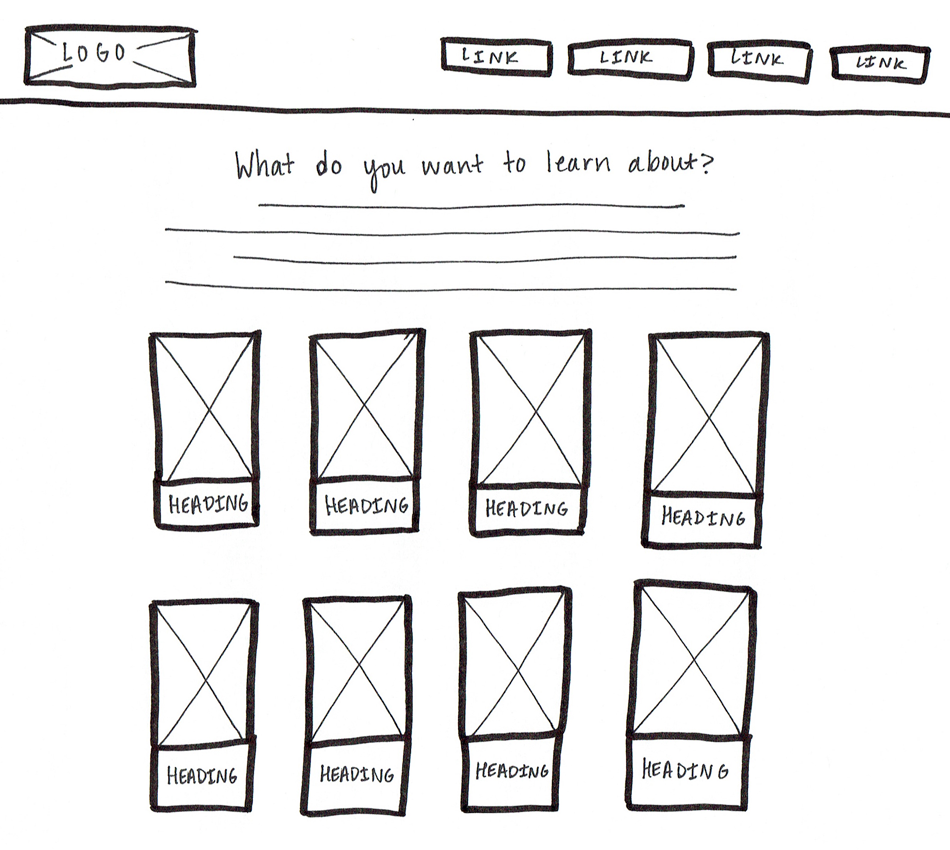 LOGO
LINK LINK LINK LINK
What do you want to learn about?
HEADING HEADING HEADING HEADING
HEADING HEADING HEADING HEADING